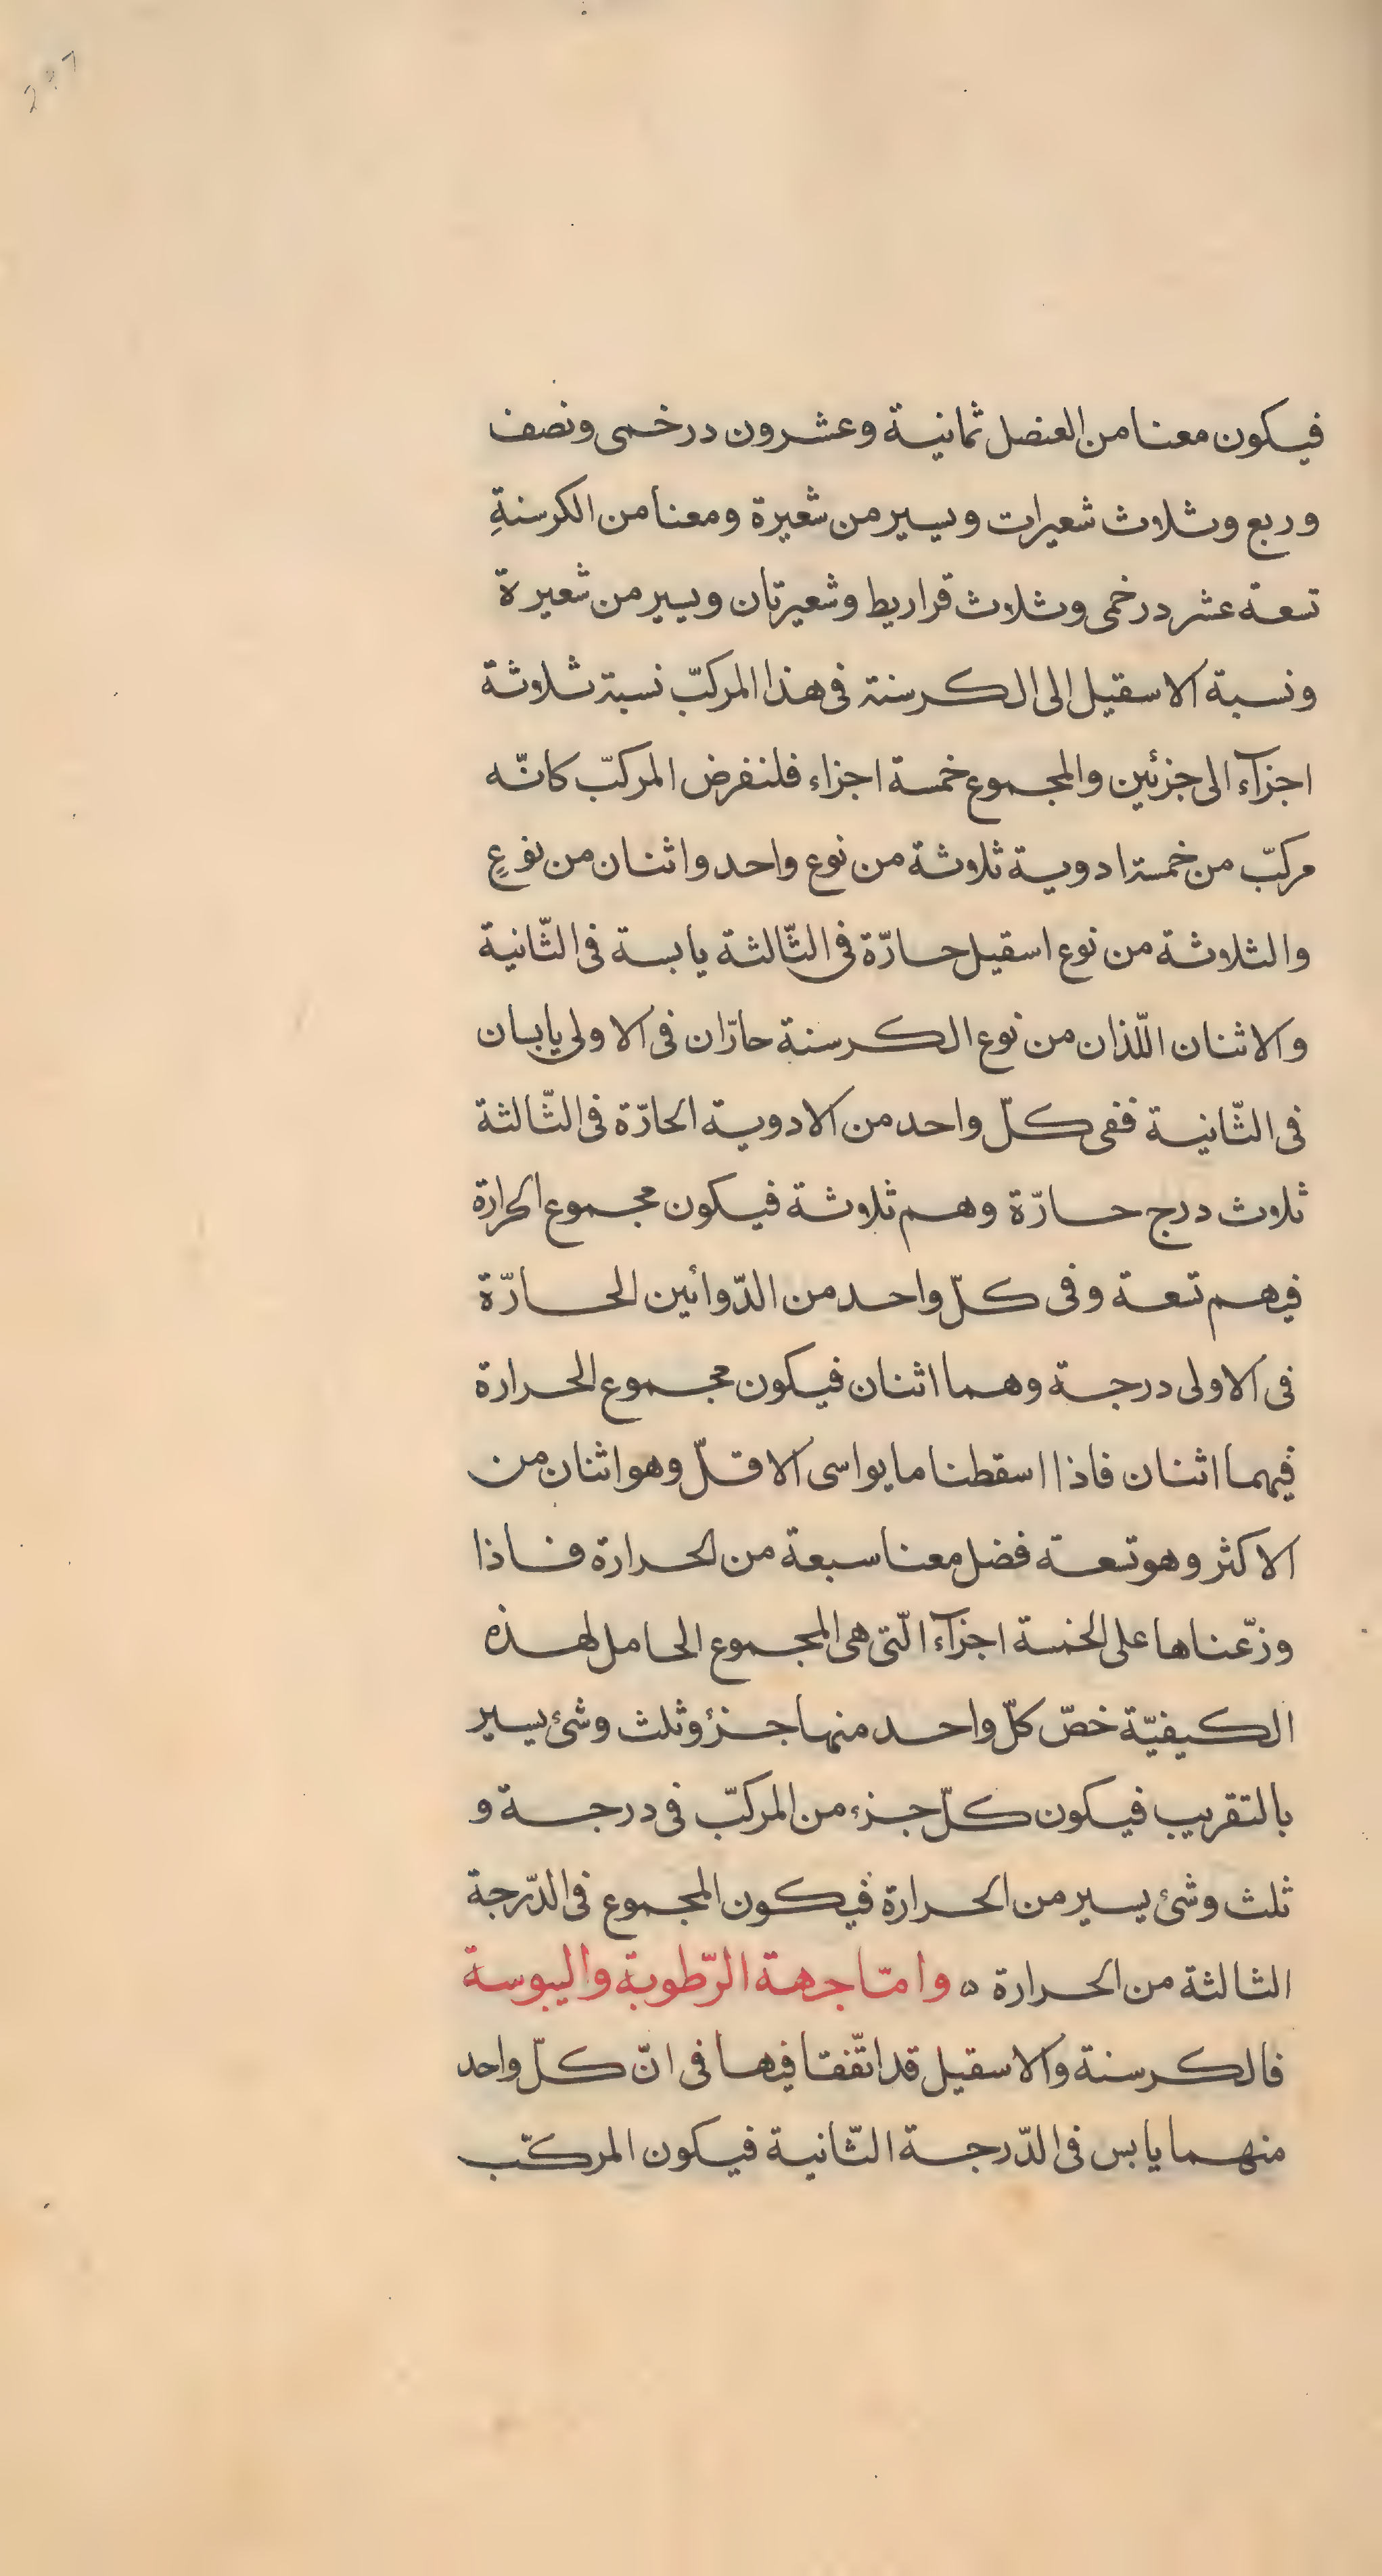 فيكون معنا من العنصل ثمانية وعشرون درخمى ونصف
وربع وثلاث شعيرات ويسير من شعيرة ومعنا من الكرسنةِ
تسعة عشر درخمى وثلاث قراريط وشعيرتان ويسير من شعيرة
ونسبة الاسقيل الى الكرسنة فى هذا المركبّ نسبة ثلاثة
اجزآء الى جزئين والمجموع خمسة اجزاء فلنفرض المركبّ كانّه
مركبّ من خمسة ادوية ثلاثة من نوع واحد واثنان من نوعٍ
والثلاثة من نوع اسقيل حارّة فى الثّالثة يابسة فى الثّانية
والاثنان اللّذان من نوع الكرسنة حارّان فى الاولى يابسان
فى الثّانية ففى كلّ واحد من الادوية الحارّة فى الثّالثة
ثلاث درج حارّة وهم ثلاثة فيكون مجموع الحرارة
فيهم تسعة وفى كلّ واحد من الدّوائين الحارّة
فى الاولى درجة وهما اثنان فيكون مجموع الحرارة
فيهما اثنان فاذا اسقطنا ما يواسى الاقلّ وهو اثنان من
الاكثر وهو تسعة فضل معنا سبعة من الحرارة فاذا
وزّعناها على الخمسة اجزآء الّتى هى المجموع الحامل لهذه
الكيفيّة خصّ كلّ واحد منها جزؤ وثلث وشئ يسير
بالتقريب فيكون كلّ جزء من المركبّ فى درجة و
ثلث وشئ يسير من الحرارة فيكون المجموع فى الدّرجة
الثالثة من الحرارة ه وامّا جهة الرّطوبة واليبوسة
فالكرسنة والاسقيل قد اتّفقتا فيها فى انّ كلّ واحد
منهما يابس فى الدّرجة الثّانية فيكون المركبّ